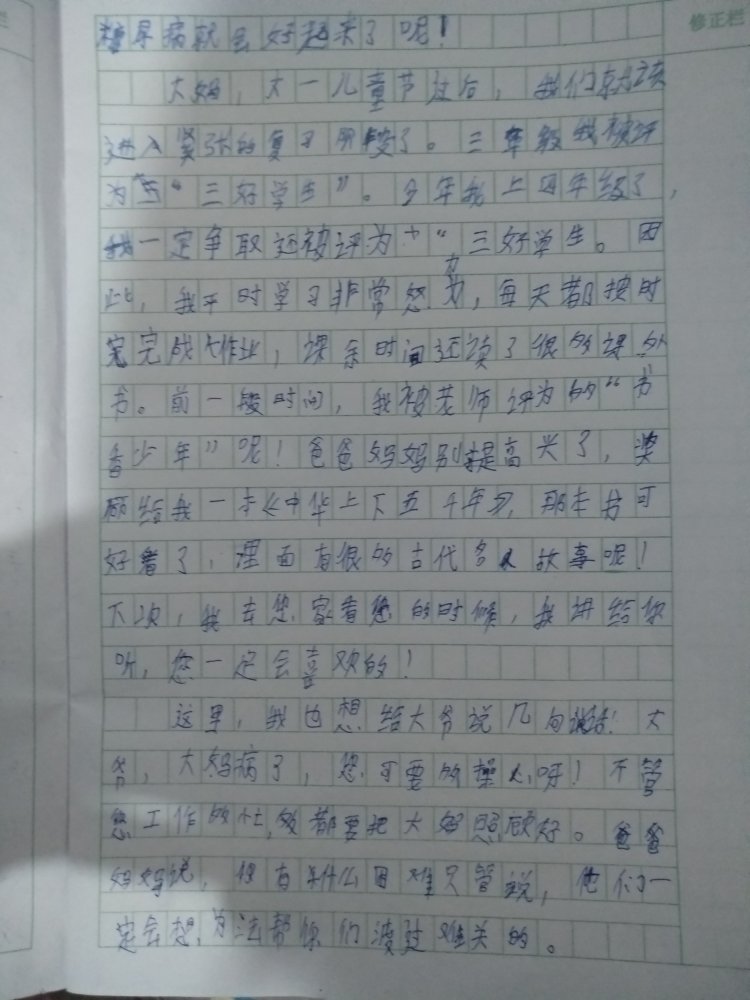 修正栏
糖早病就会好起来了呢!
大妈,六一儿童节过后,我们就该
进入紧张的复习阶段了。三年级我被评
为“三好学生”。今年我上四年级了,
我一定争取还被评为“三好学生。因
此,我平时学习非常努力,每天都按时
完完成作业,课余时间还读了很多课外
书。前一段时间,我被老师评为的“书
香少年”呢!爸爸妈妈别提高兴了,奖
励给我一本《中华上下五千年》,那本书可
好看了,里面有很多古代名人故事呢!
下次,我去您家看您的时候,我讲给你
听,您一定会喜欢的!
这里,我也想给大爷说几句话!大
爷,大妈病了,您可要多操心呀!不管
您工作多忙,都要把大妈照顾好。爸爸
妈妈说,您有什么困难只管说,他们一
定会想办法帮你们渡过难关的。